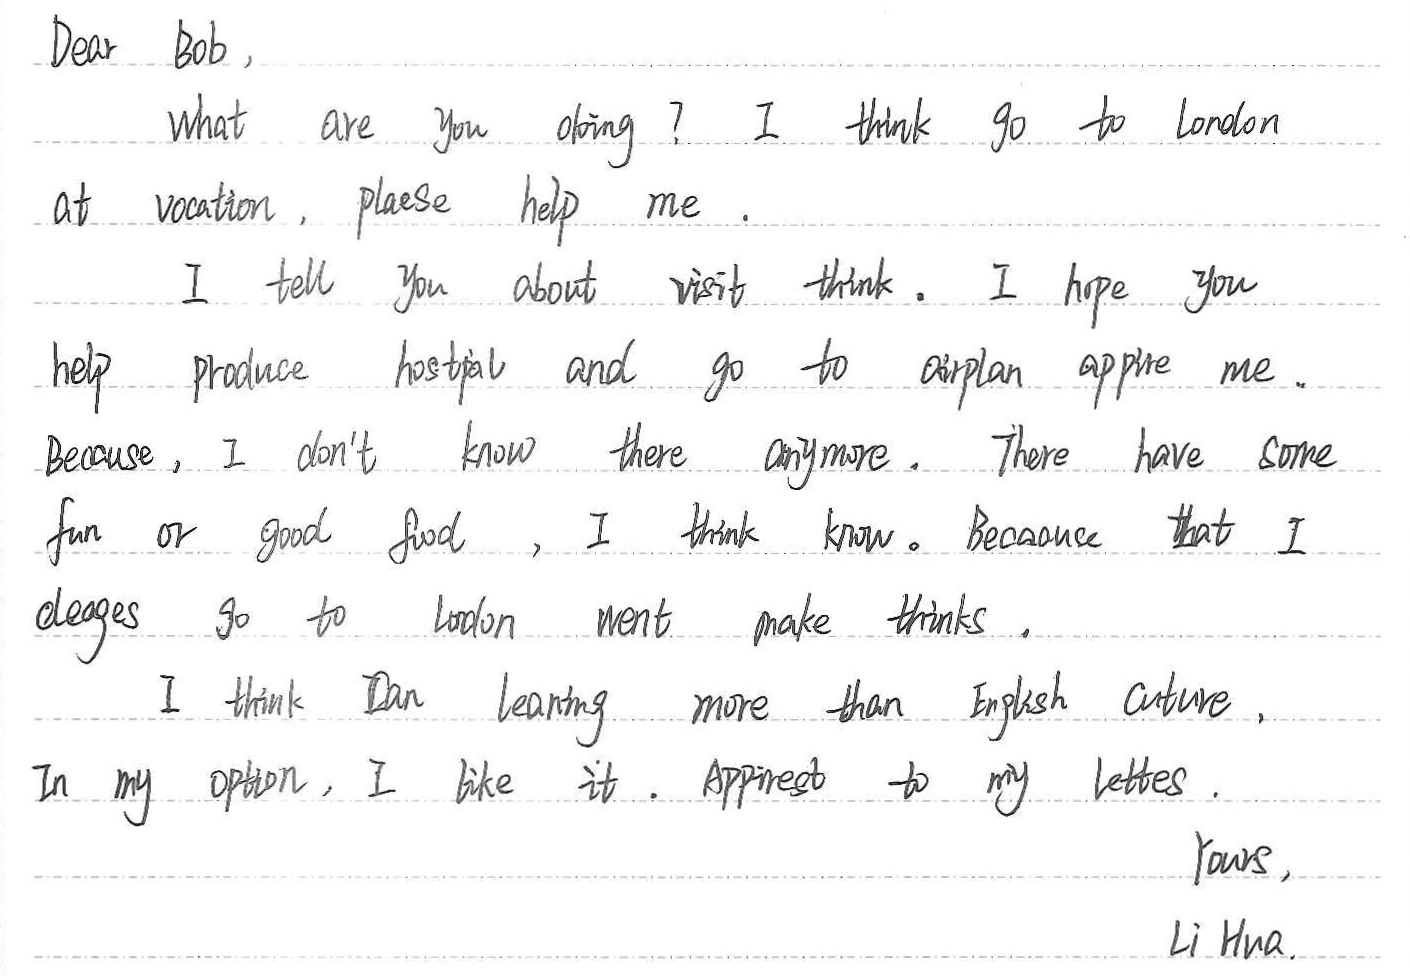 Dear Bob,
What are you doing? I think go to London
at vocation, plaese help me.
I tell you about visit think. I hope you
help produce hostpial and go to airplan appire me.
Because, I don't know there anymore. There have some
fun or good food, I think know. Becaouce that I
cleages go to Lodon went make thinks.
I think Dan leaning more than English cuture,
In my option, I like it. Appirest to my lettes.
Yours,
Li Hua.